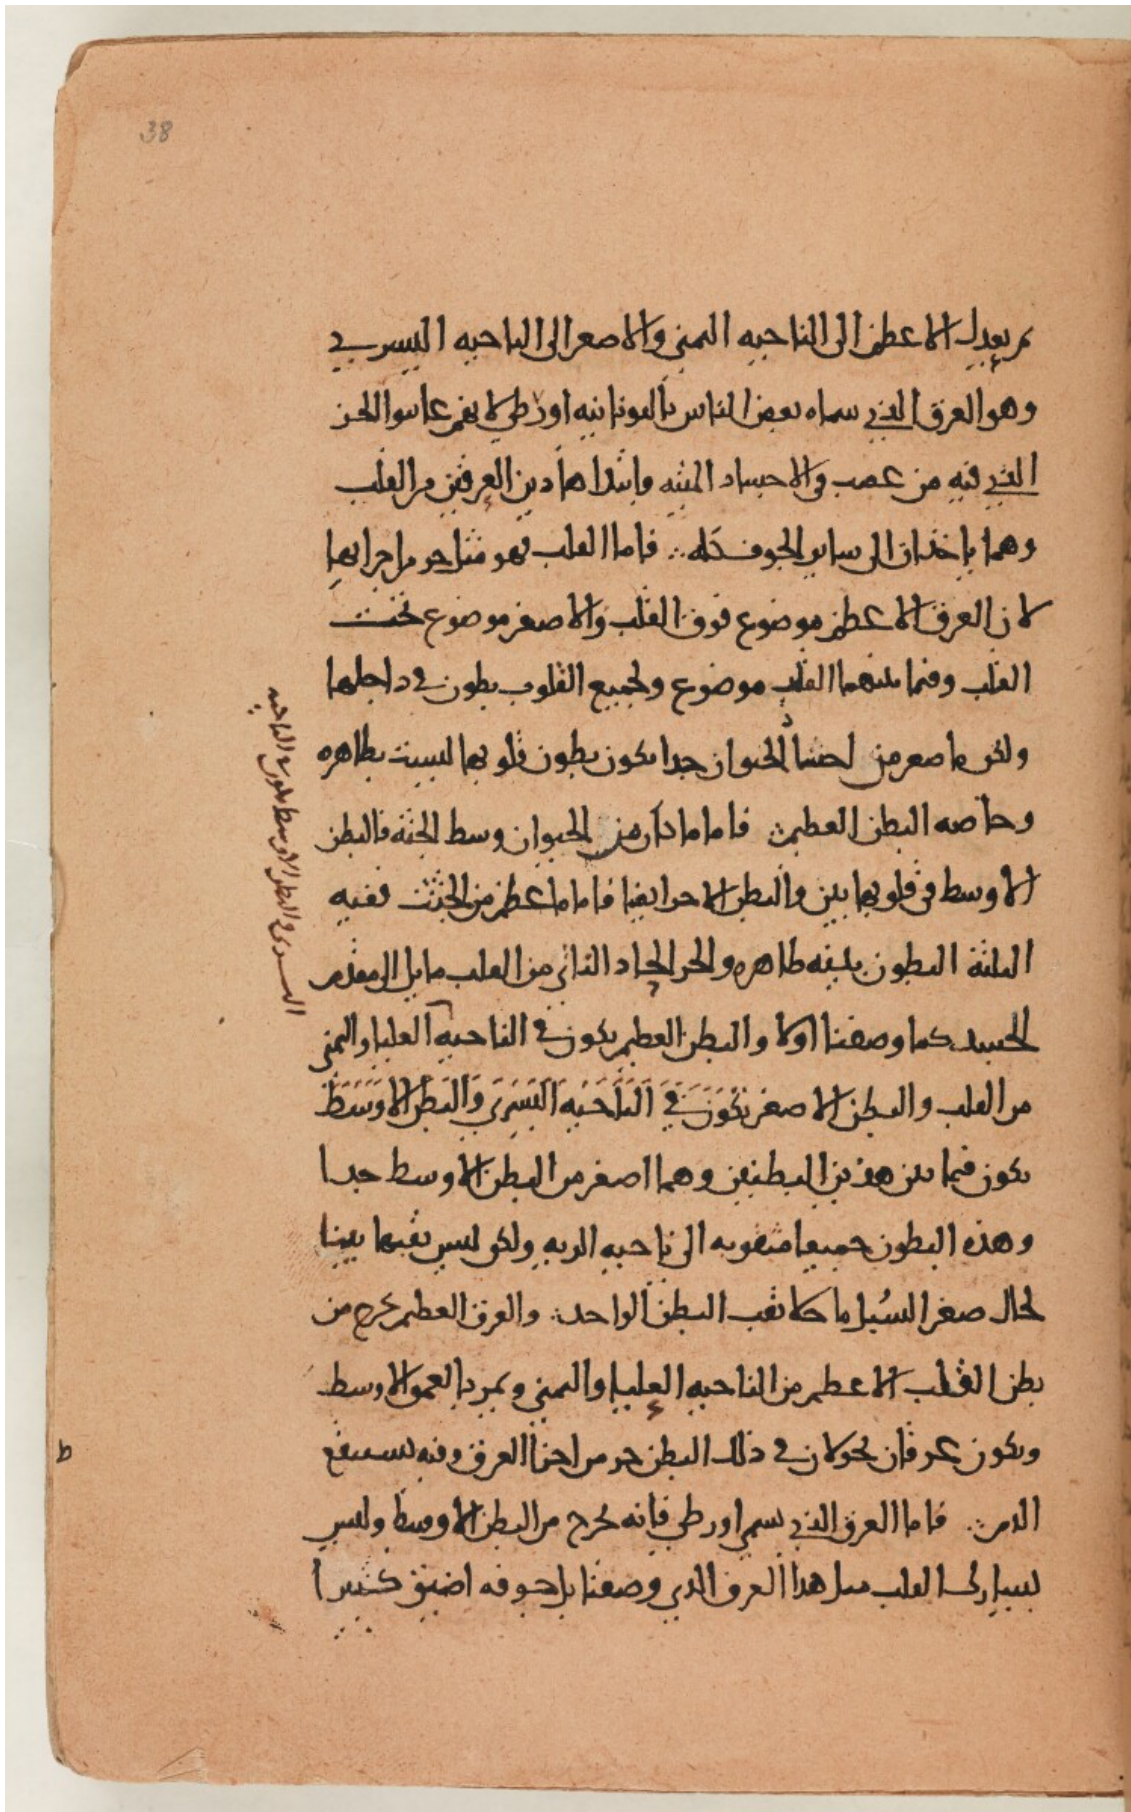 38
ثم يعدل الاعظم الى الناحيه اليمنى والاصغر الى الناحيه اليسرى
وهو العرق الذي سماه بعض الناس باليونانيه اورطي لا
الذي فيه من عصب في الاجساد الميته وابتدا هاذين العرقين من القلب
وهما ياخذان الى ساير الجوف كله ∴ فاما القلب فهو مثل جزء من اجزايهما
لان العرق الاعظم موضوع فوق القلب والاصغر موضوع تحت
القلب وفيما بينهما القلب موضوع ولجميع القلوب بطون في داخلها
ولكن ما صغر من احشا الحيوان جدا يكون بطون قلوبها ليست بظاهره
وخاصه البطن العظيم ∴ فاما ما كان من الحيوان وسط الجثه فالبطن
الاوسط في قلوبها بين والبطن الاخر ايضا فاما ما عظم من الجثث ففيه
الثلثة البطون بينه ظاهره والجزء الحاد الناتي من القلب مايل الى مقدم
الجسد كما وصفنا اولا والبطن العظيم يكون في الناحيه العليا واليمنى
من القلب والبطن الاصغر يكون في الناحيه اليسرى والبطن الاوسط
يكون فيما بين هذين البطنين وهما اصغر من البطن الاوسط جدا
وهذه البطون جميعا مثقوبه الى ناحيه الريه ولكن ليس ثقبها بينا
لحال صغر السُبل ما خلا ثقب البطن الواحد ∴ والعرق العظيم يخرج من
بطن القلب الاعظم من الناحيه العليا واليمنى ويمر بالعمق الاوسط
ويكون عرقان يحولان في ذلك البطن جزء من اجزا العرق وفيه يستنقع
الدم ∴ فاما العرق الذي يسمى اورطي فانه يخرج من البطن الاوسط وليس
سبيله الى القلب مثل هذا العرق الذي وصفنا بل جوفه اضيق كثيرا
والبطن الاوسط يكون في الناحيه
اليسرى
ط